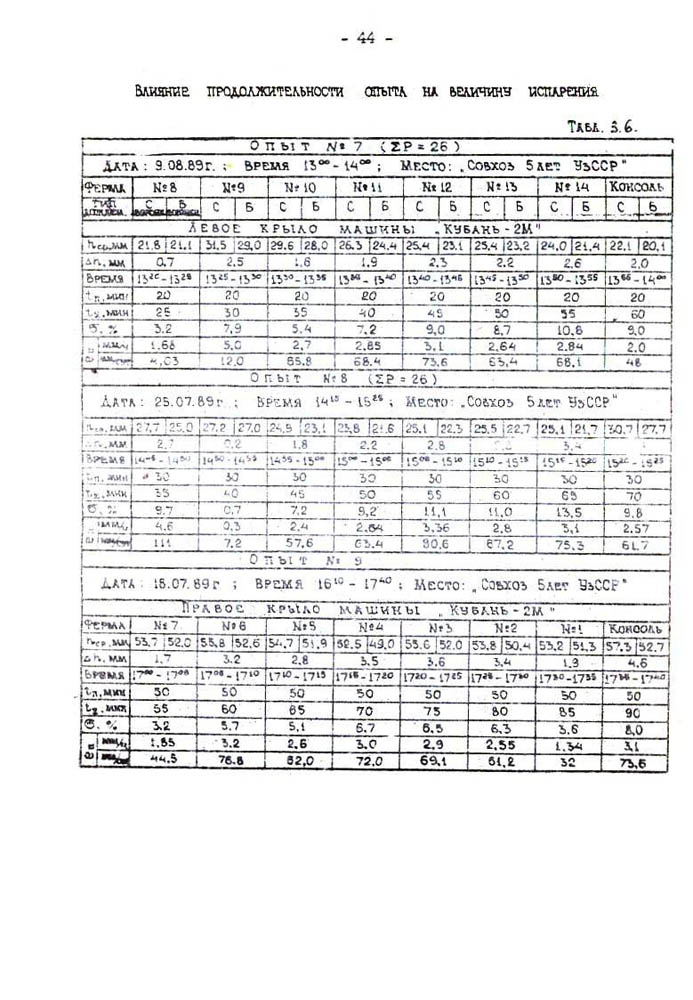 - 44 -
Влияние продолжительности опыта на величину испарения
Табл. 3.6.
Опыт №7 (ΣP=26)
Дата: 9.08.89г.; Время 13⁰⁰-14⁰⁰; Место: „Совхоз 5 лет УзССР"
Ферма №8 №9 №10 №11 №12 №13 №14 Консоль
Тип С Б С Б С Б С Б С Б С Б С Б С Б
Левое крыло машины „Кубань-2М"
hср.мм 21.8 21.1 31,5 29,0 29.6 28,0 26.3 24.4 25.4 23.1 25,4 23,2 24,0 21,4 22,1 20,1
Δh.мм 0.7 2,5 1,6 1,9 2,3 2.2 2,6 2,0
Время 13²⁰-13²⁵ 13²⁵-13³⁰ 13³⁰-13³⁵ 13³⁵-13⁴⁰ 13⁴⁰-13⁴⁵ 13⁴⁵-13⁵⁰ 13⁵⁰-13⁵⁵ 13⁵⁵-14⁰⁰
tп.мин 20 20 20 20 20 20 20 20
мин 25 30 35 40 45 50 55 60
σ.% 3.2 7,9 5.4 7.2 9,0 8,7 10,8 9,0
1,68 5,0 2,7 2,85 3,1 2,64 2,84 2,0
4,03 12,0 65,8 68,4 73,6 63,4 68,1 48
Опыт №8 (ΣP=26)
Дата: 25.07.89г.; Время 14¹⁵-15²⁵; Место: „Совхоз 5 лет УзССР"
hср.мм 27,7 25,0 27,2 27,0 24,9 23,1 23,8 21,6 25,1 22,3 25,5 22,7 25,1 21,7 30,7 27,7
мм 2,7 0,2 1,8 2,2 2,8 3,4
Время 14⁵⁰-14⁵⁵ 14⁵⁵-15⁰⁰ 15⁰⁰-15⁰⁵ 15⁰⁵-15¹⁰ 15¹⁰-15¹⁵ 15¹⁵-15²⁰ 15²⁰-15²⁵
tп.мин 30 30 30 30 30 30 30 30
мин 35 40 45 50 55 60 65 70
σ.% 9,7 0,7 7,2 9,2 11,1 11,0 13,5 9,8
4,6 0,3 2,4 2,64 3,36 2,8 3,1 2,57
111 7,2 57,6 63,4 80,6 67,2 75,3 61,7
Опыт № 9
Дата: 18.07.89г; Время 16¹⁰-17⁴⁰; Место: „Совхоз 5 лет УзССР"
Правое крыло машины „Кубань-2М"
Ферма №7 №6 №5 №4 №3 №2 №1 Консоль
hср.мм 53,7 52,0 55,8 52,6 54,7 51,9 52,5 49,0 55,6 52,0 53,8 50,4 53,2 51,3 57,3 52,7
Δh.мм 1,7 3.2 2,8 3,5 3,6 3,4 1,9 4,6
Время 17⁰⁰-17⁰⁵ 17⁰⁵-17¹⁰ 17¹⁰-17¹⁵ 17¹⁵-17²⁰ 17²⁰-17²⁵ 17²⁵-17³⁰ 17³⁰-17³⁵ 17³⁵-17⁴⁰
tп.мин 50 50 50 50 50 50 50 50
мин 55 60 65 70 75 80 85 90
σ.% 3.2 5,7 5,1 6,7 6,5 6,3 3,6 8,0
1,85 3,2 2,6 3,0 2,9 2,55 1,34 3,1
44,5 76.8 62,0 72,0 69,1 61,2 32 73,6